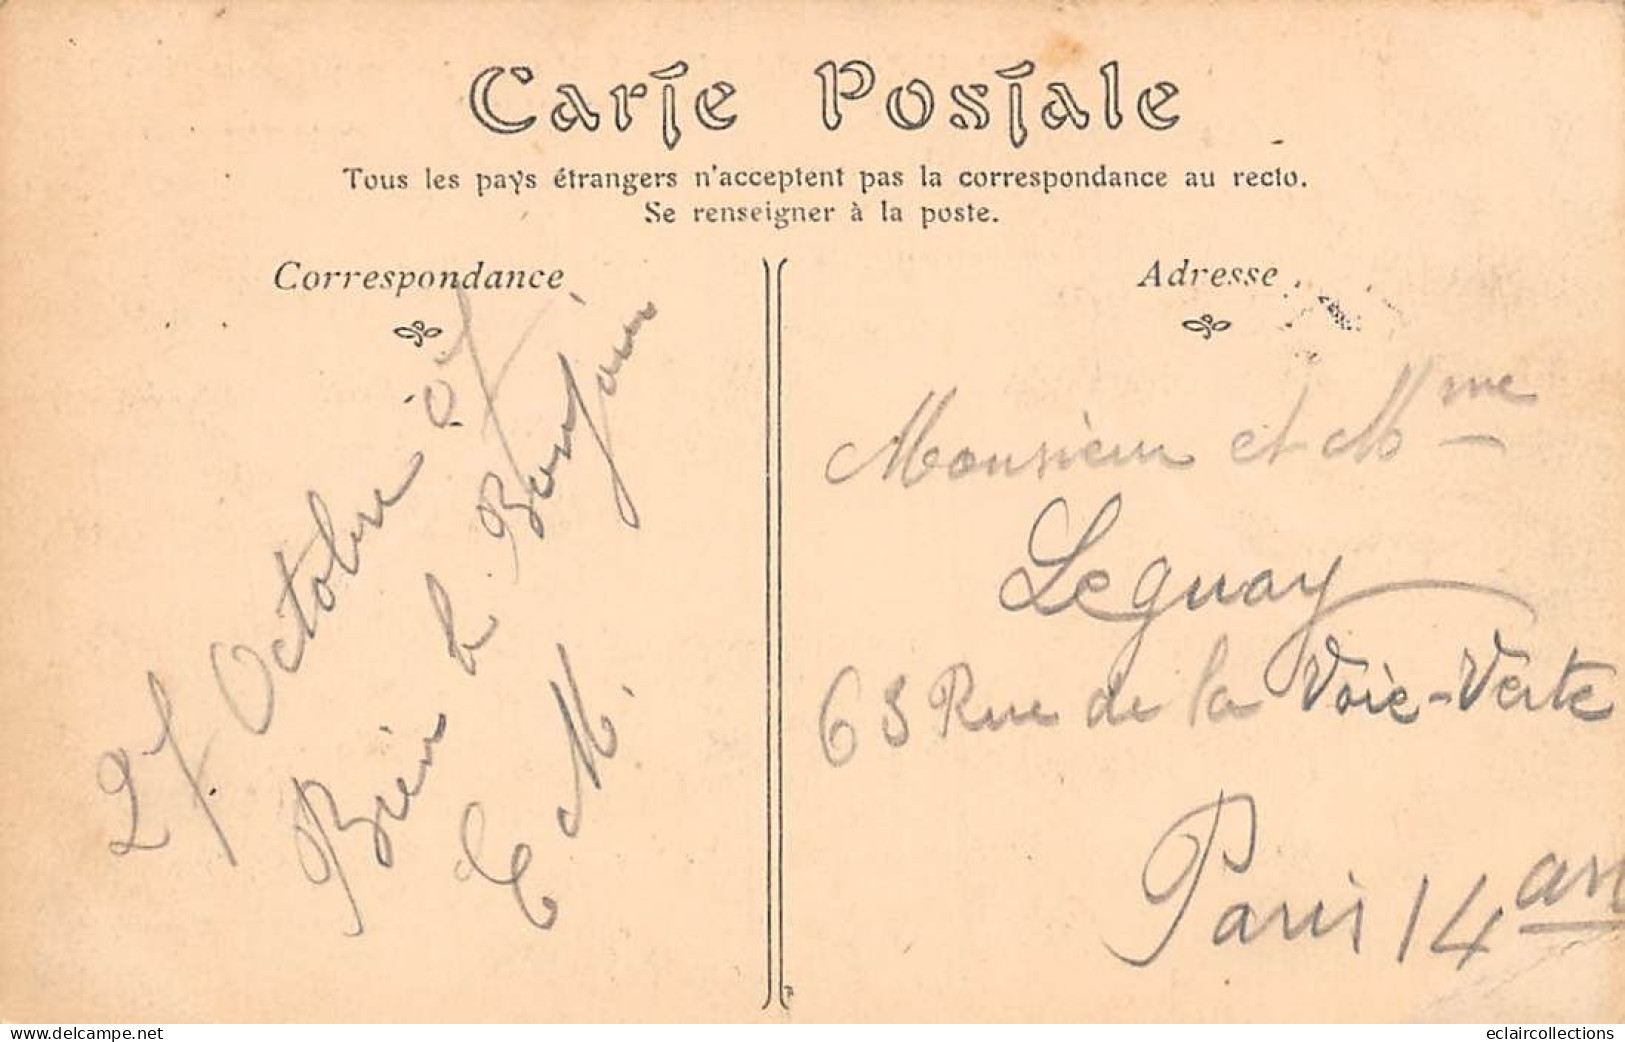 Carte Postale
Tous les pays étrangers n'acceptent pas la correspondance au recto.
Se renseigner à la poste.
Correspondance
27 Octobre 07
Bien le Bonjour
E M.
Adresse
Monsieur et Mme
Leguay
63 Rue de la Voie-Verte
Paris 14 arr
eclaircollections
www.delcampe.net